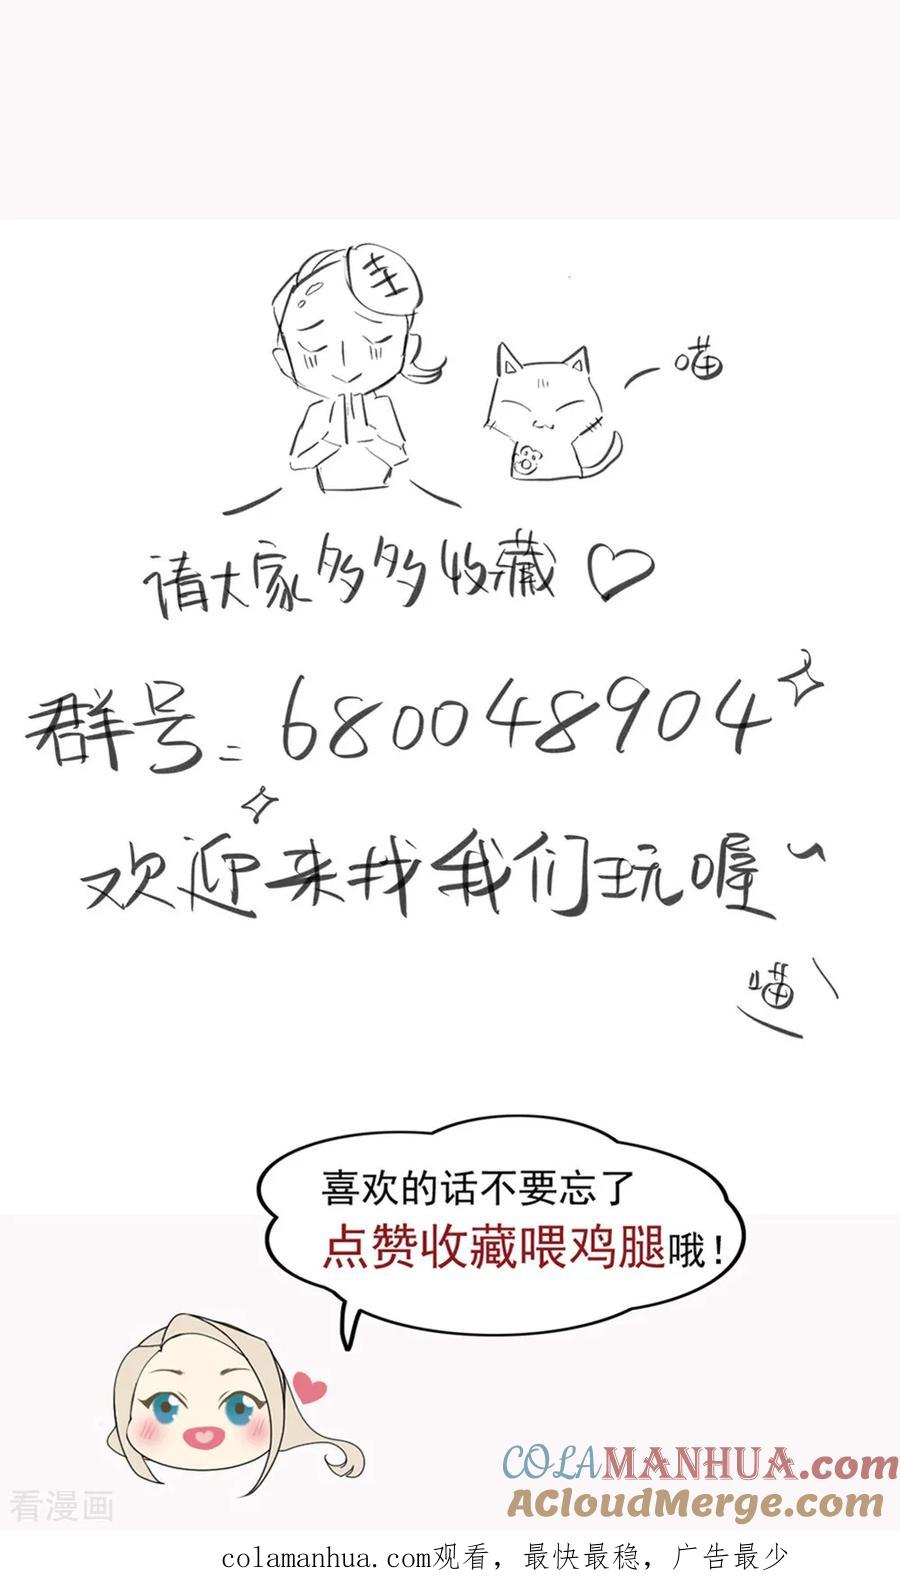 圭
喵
请大家多多收藏♡
群号：680048904
欢迎来找我们玩喔~
喵
喜欢的话不要忘了
点赞收藏喂鸡腿哦!
COLAMANHUA.com
ACloudMerge.com
看漫画
colamanhua.com观看，最快最稳，广告最少